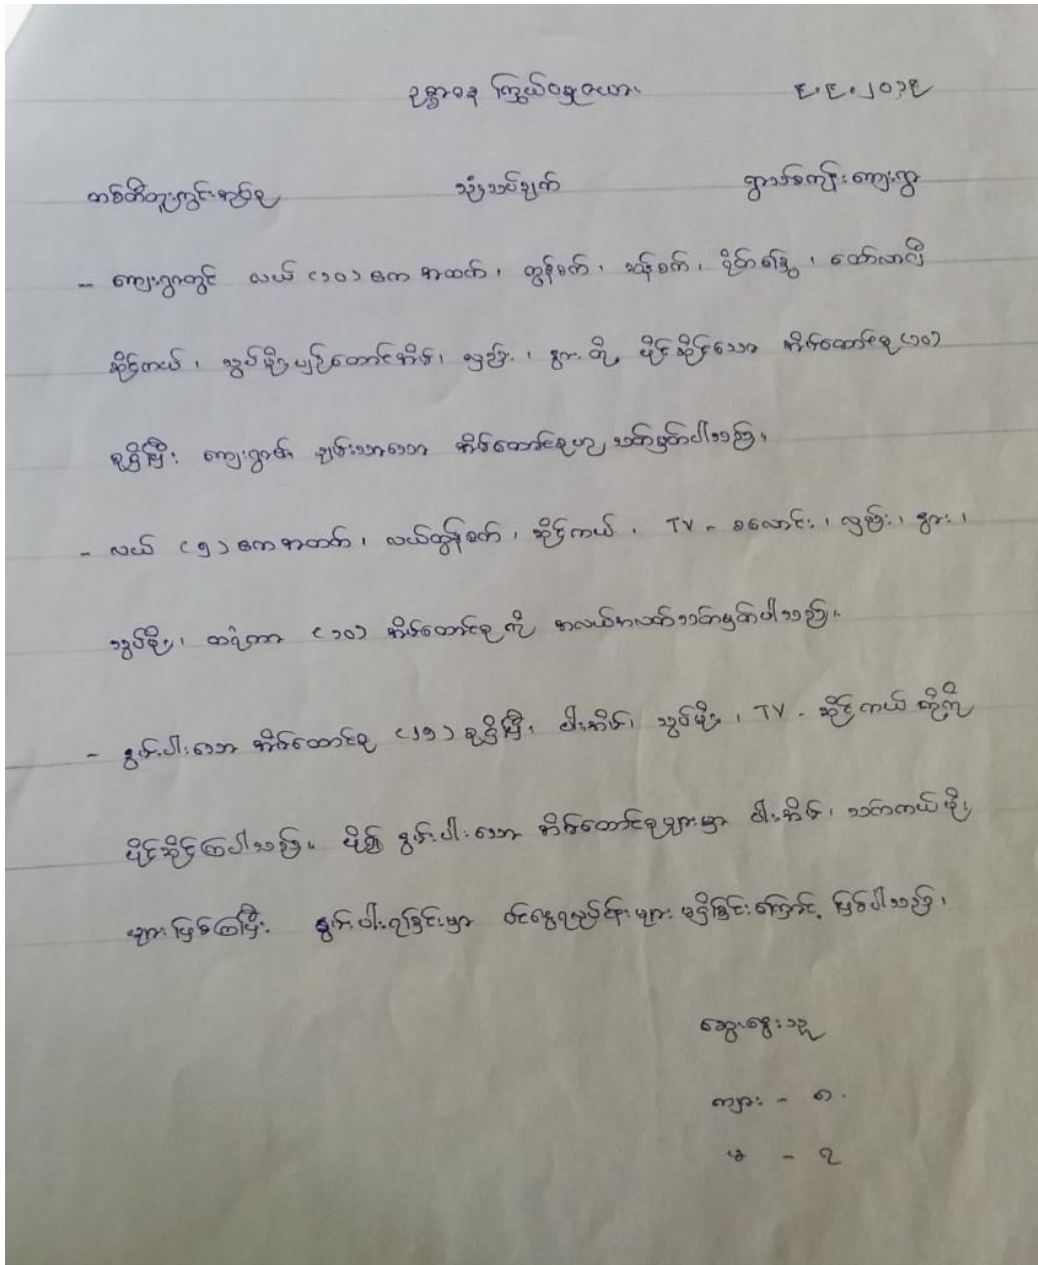 ဥစ္စာဓန ကြွယ်ဝမှုဇယား ၉.၉.၂၀၁၉
တစ်တီတူးကွင်းအုပ်စု သုံးသပ်ချက် ရွာသစ်ကုန်းကျေးရွာ
- ကျေးရွာတွင် လယ် (၁၀) ဧက အထက်၊ ထွန်စက်၊ ၊ ၊ ထော်လာဂျီ
ဆိုင်ကယ်၊ သွပ်မိုးပျဉ်ထောင်အိမ်၊ လှည်း၊ နွား တို့ ပိုင်ဆိုင်သော အိမ်ထောင်စု (၁၀)
စုရှိပြီး ကျေးရွာ၏ ချမ်းသာသော အိမ်ထောင်စုဟု သတ်မှတ်ပါသည်။
- လယ် (၅) ဧက အထက်၊ လယ်ထွန်စက်၊ ဆိုင်ကယ်၊ TV - စလောင်း၊ လှည်း၊ နွား၊
သွပ်မိုး၊ ထရံကာ (၁၀) အိမ်ထောင်စုကို အလယ်အလတ်သတ်မှတ်ပါသည်။
- နွမ်းပါးသော အိမ်ထောင်စု (၂၅) စုရှိပြီး ဝါးအိမ်၊ သွပ်မိုး၊ TV - ဆိုင်ကယ် တို့ကို
ပိုင်ဆိုင်ကြပါသည်။ ပို၍ နွမ်းပါးသော အိမ်ထောင်စုများမှာ ဝါးအိမ်၊ သက်ကယ်မိုး
များဖြစ်ကြပြီး နွမ်းပါးရခြင်းမှာ ဝင်ငွေရလုပ်ငန်းများ မရှိခြင်းကြောင့် ဖြစ်ပါသည်။
ဆွေးနွေးသူ
ကျား - ၈
မ - ၃